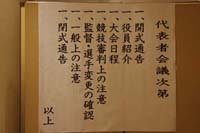 代表者会議次第
一、開式通告
一、役員紹介
一、大会日程
一、競技審判上の注意
一、監督・選手変更の確認
一、一般上の注意
一、閉式通告
以上